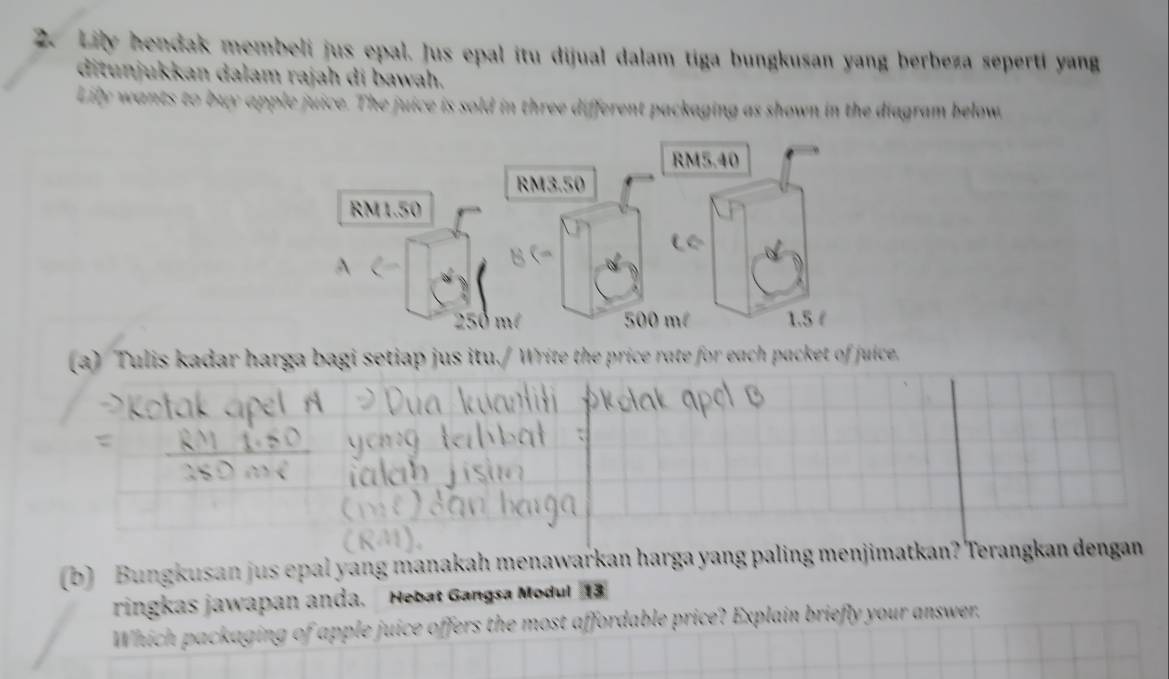 2. Lily hendak membeli jus epal. Jus epal itu dijual dalam tiga bungkusan yang berbeza seperti yang
ditunjukkan dalam rajah di bawah.
Lily wants to buy apple juice. The juice is sold in three different packaging as shown in the diagram below.
RM5.40
RM3.50
RM1.50
A B C
250 mℓ 500 mℓ 1.5 ℓ
(a) Tulis kadar harga bagi setiap jus itu./ Write the price rate for each packet of juice.
→Kotak apel A → Dua kuantiti →Kotak apel B
= RM 1.50 yang terlibat =
250 mℓ ialah jisim
(mℓ) dan harga
(RM).
(b) Bungkusan jus epal yang manakah menawarkan harga yang paling menjimatkan? Terangkan dengan
ringkas jawapan anda. Hebat Gangsa Modul 13
Which packaging of apple juice offers the most affordable price? Explain briefly your answer.